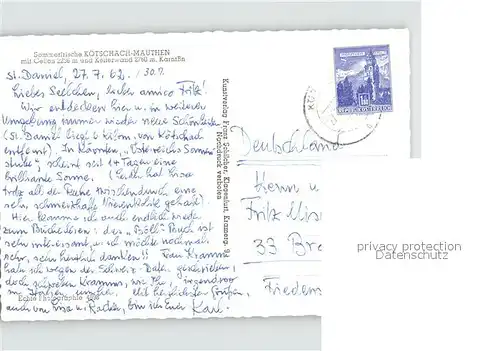 Sommerfrische KÖTSCHACH-MAUTHEN
mit Gailtal 2236 m und Kellerwand 2760 m, Kärnten
St. Daniel, 27. 7. 62. / 30.7.
Liebes Seelchen, lieber amico Fritz!
Wir entdecken hier u. in weiterer
Umgebung immer wieder neue Schönheiten
(St. Daniel liegt 6 Kilom. von Kötschach
entfernt). In Kärnten, "Österreichs Sonnen
stube", scheint seit 4 Tagen eine
brillante Sonne. (Leider hat
trotz all der Ruhe zwischendurch eine
sehr schmerzhafte Nierenkolik gehabt).
Hier komme ich auch endlich wieder
zum Bücherlesen: das "Böll" Buch ist
sehr interessant u. ich möchte nochmals
sehr, sehr herzlich danken!! Frau Kramm
habe ich wegen der Schweiz-Daten geschrieben,
doch schreiben Kramms, wie Ihr, irgendwo
im Mit herzlichsten Grüßen,
Echte Photographie
auch von u. bin ich Euer Karl.
Kunstverlag Franz Schilcher, Klagenfurt, Kramerg. 9
Nachdruck verboten
REPUBLIK ÖSTERREICH
Deutschland
Herrn u.
Fritz
33
privacy protection
Datenschutz